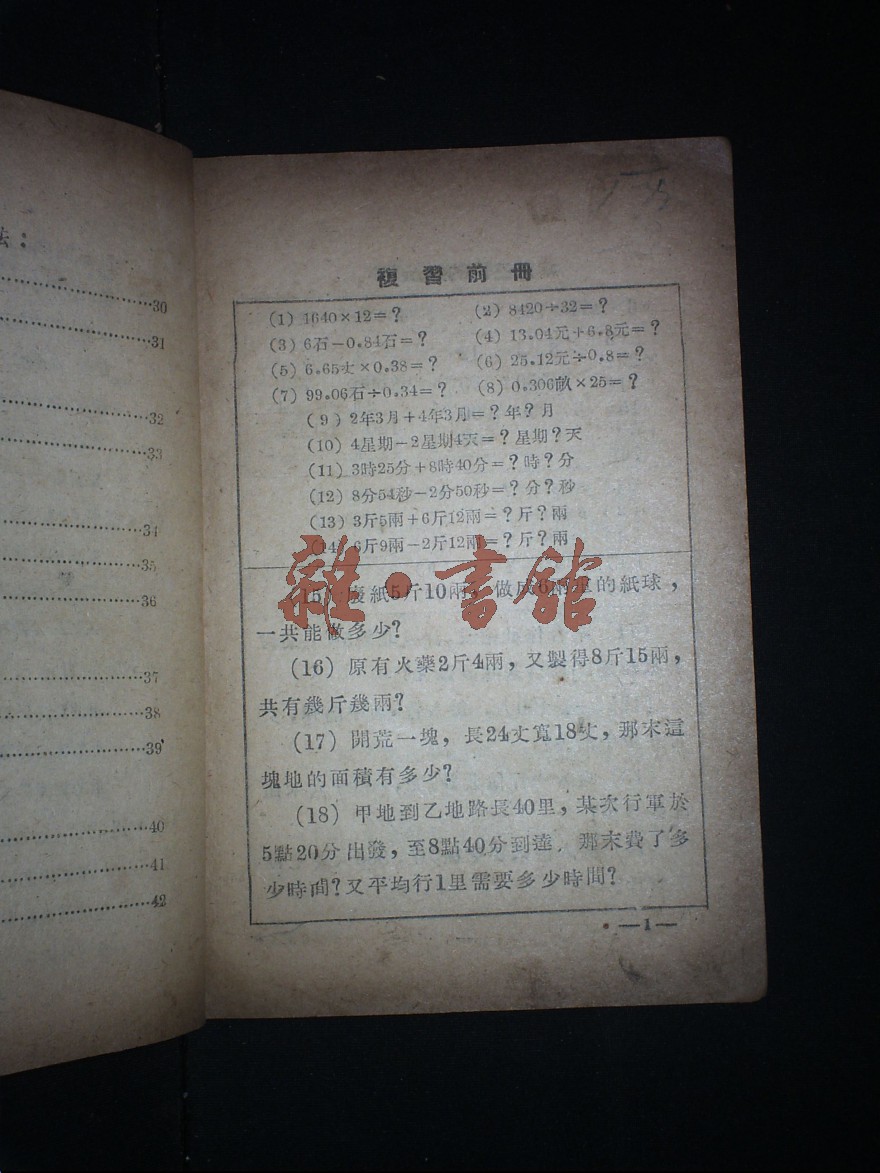 法：
30
31
32
33
34
35
36
37
38
39
40
41
42
複習前冊
(1) 4640×12=？ (2) 8420÷32=？
(3) 6石－0.84石=？ (4) 13.04元+6.8元=？
(5) 6.65丈×0.38=？ (6) 25.12元÷0.8=？
(7) 99.06石÷0.34=？ (8) 0.306畝×25=？
(9) 2年3月+4年3月=？年？月
(10) 4星期－2星期4天=？星期？天
(11) 3時25分+8時40分=？時？分
(12) 8分54秒－2分50秒=？分？秒
(13) 3斤5兩+6斤12兩=？斤？兩
(14) 6斤9兩－2斤12兩=？斤？兩
(15) 廢紙5斤10兩，做成6兩重的紙球，
一共能做多少？
(16) 原有火藥2斤4兩，又製得8斤15兩，
共有幾斤幾兩？
(17) 開荒一塊，長24丈寬18丈，那末這
塊地的面積有多少？
(18) 甲地到乙地路長40里，某次行軍於
5點20分出發，至8點40分到達，那末費了多
少時間？又平均行1里需要多少時間？
—1—
雜·書館